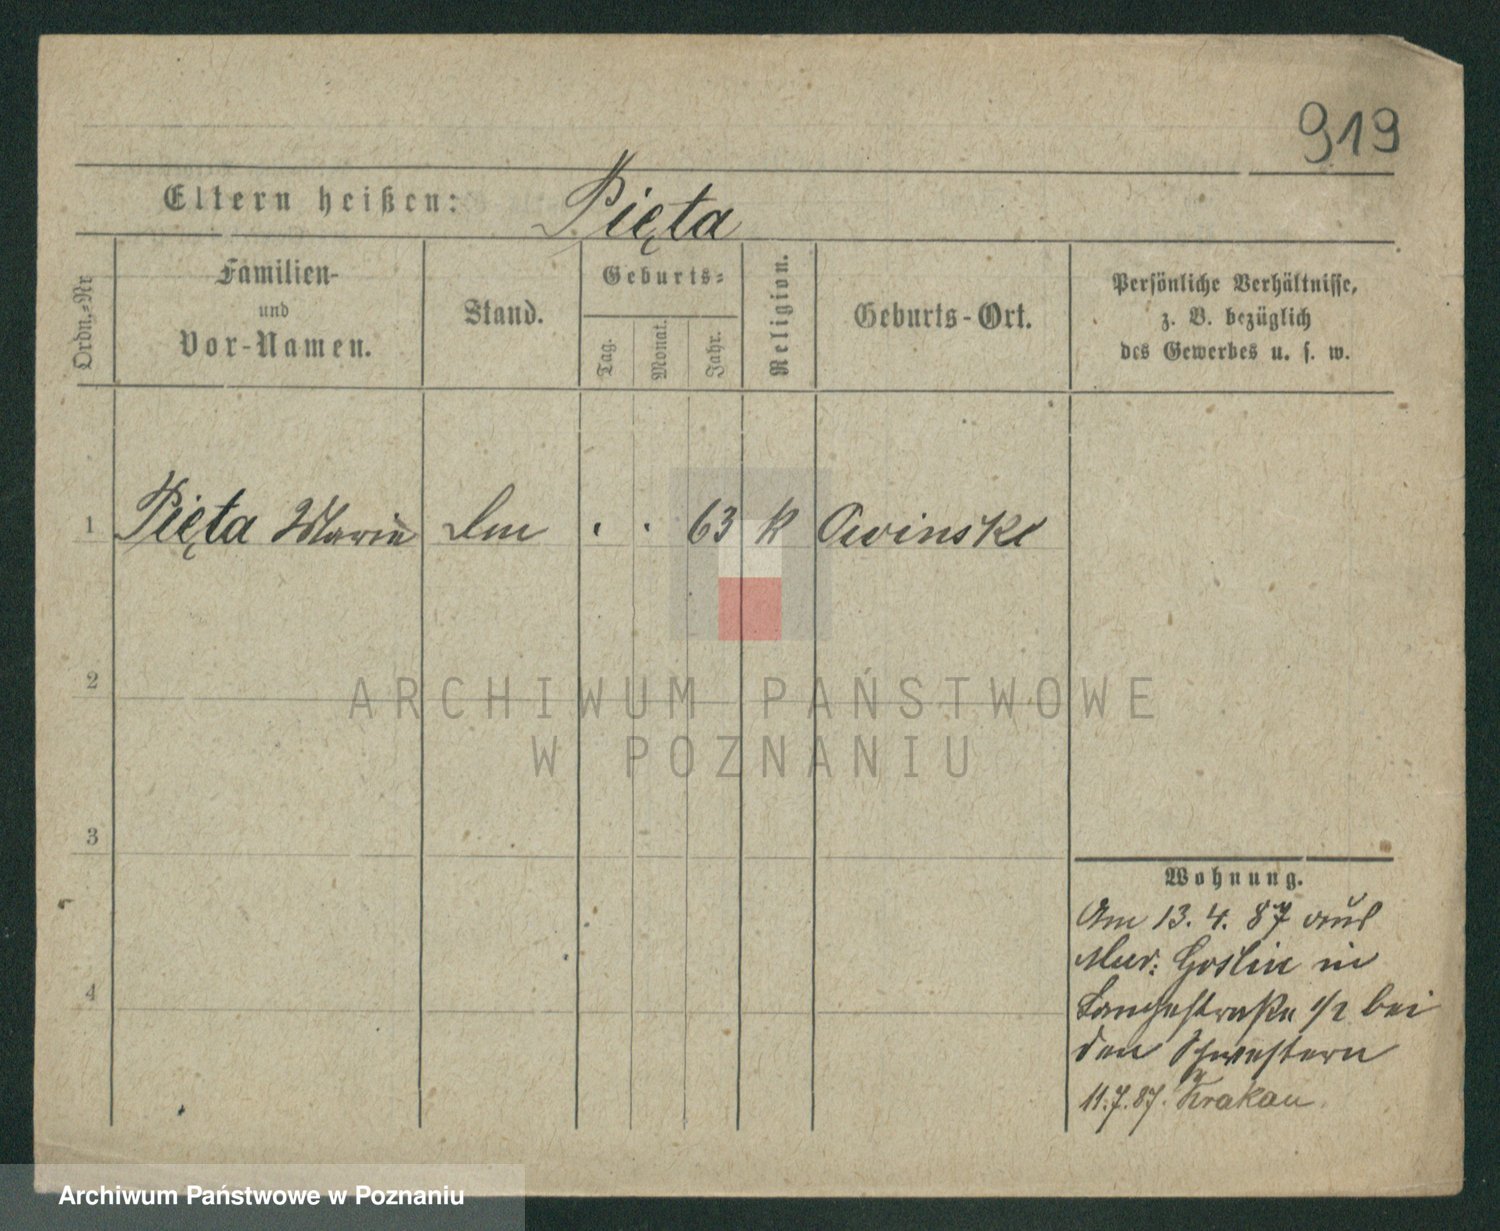 919
Eltern heißen: Pięta
Ordn.-Nr
Familien-
und
Vor-Namen.
Stand.
Geburts-
Tag.
Monat.
Jahr.
Religion.
Geburts-Ort.
Persönliche Verhältnisse,
z. B. bezüglich
des Gewerbes u. s. w.
1 Pięta Marie 63 k Owinsk
2
3
4
Wohnung.
Am 13. 4. 87 aus
Mur: Goslin in
Langestraße 1/2 bei
den Schwestern
11.7.87. Krakau.
ARCHIWUM PAŃSTWOWE
W POZNANIU
Archiwum Państwowe w Poznaniu